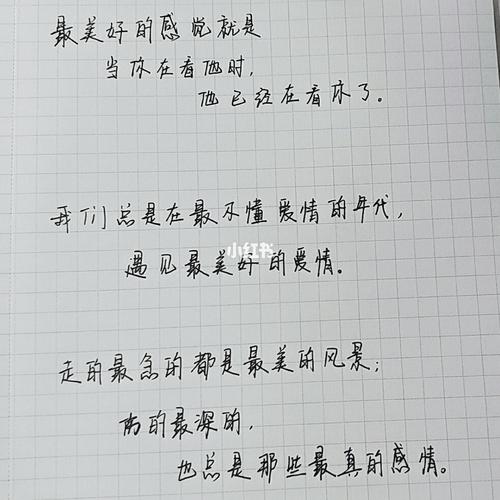 最美好的感觉就是
当你在看他时，
他已经在看你了。
我们总是在最不懂爱情的年代，
遇见最美好的爱情。
小红书
走的最急的都是最美的风景；
伤的最深的，
也总是那些最真的感情。